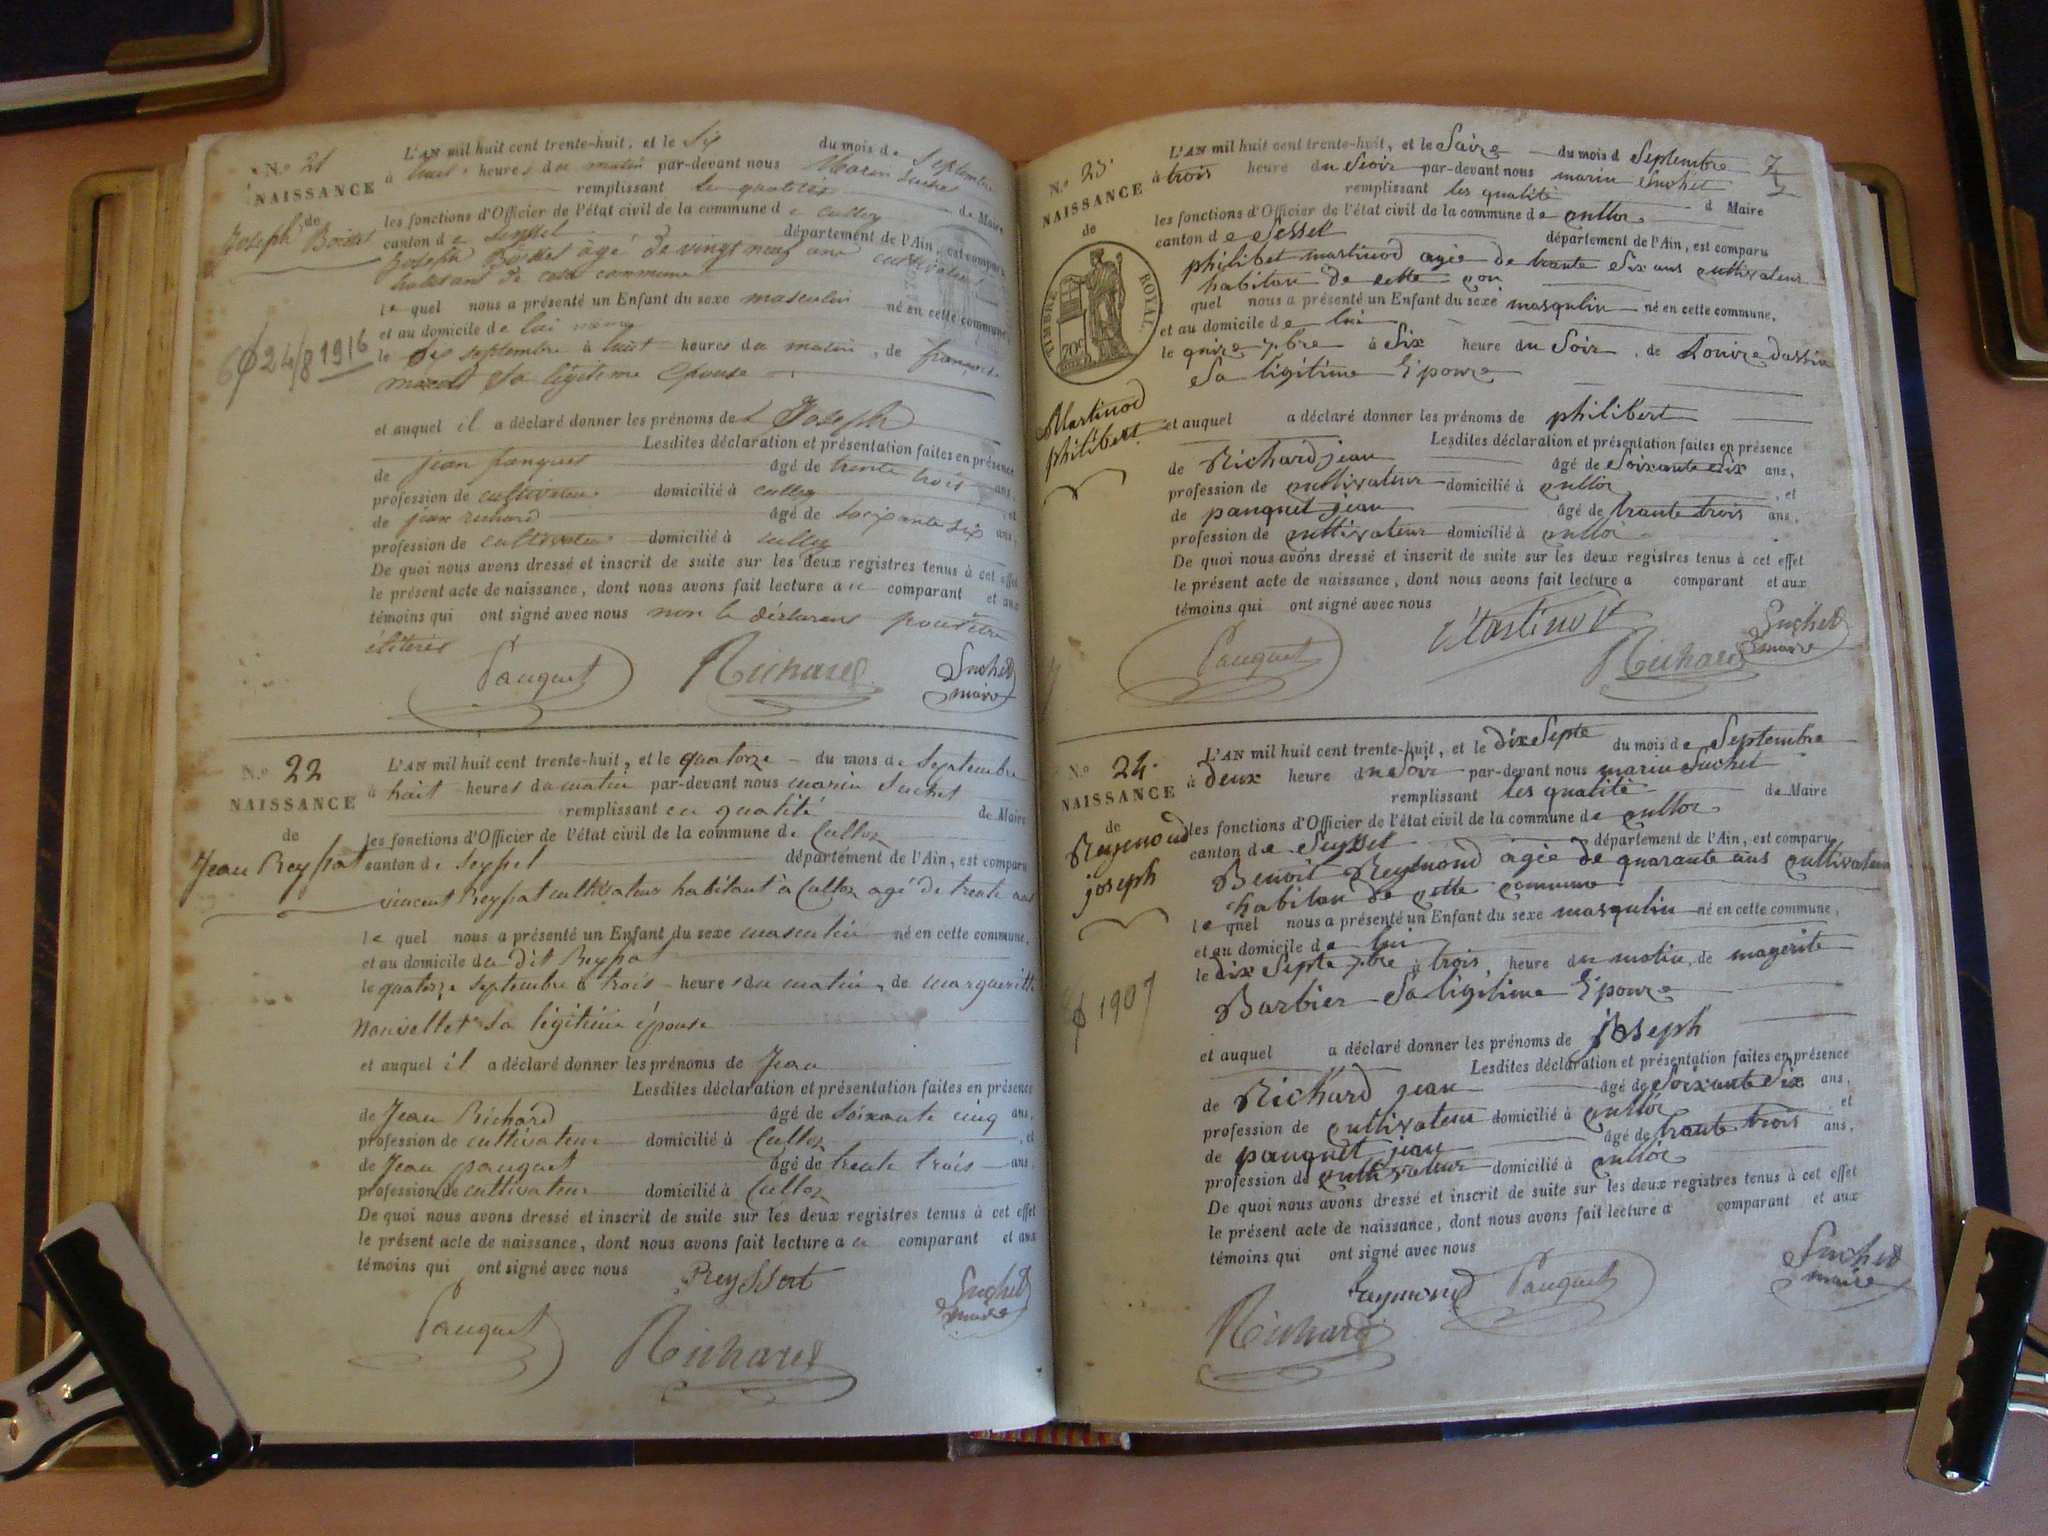 N.º 21
NAISSANCE
de
Joseph Boisset
6 24/8 1916
L'AN mil huit cent trente-huit, et le six du mois de Septembre
à huit heures du matin par-devant nous Marin Suchet
remplissant de Maire
les fonctions d'Officier de l'état civil de la commune de culloz
canton de Seyssel département de l'Ain, est comparu
Joseph âgé de vingt neuf ans cultivateur
habitant de cette commune
le quel nous a présenté un Enfant du sexe masculin né en cette commune,
et au domicile de lui même
le six septembre à huit heures du matin, de françoise
sa légitime épouse
et auquel il a déclaré donner les prénoms de Joseph
Lesdites déclaration et présentation faites en présence
de jean panquet âgé de trente trois ans,
profession de cultivateur domicilié à culloz, et
de jean richard âgé de soixante six ans,
profession de cultivateur domicilié à culloz
De quoi nous avons dressé et inscrit de suite sur les deux registres tenus à cet effet
le présent acte de naissance, dont nous avons fait lecture au comparant et aux
témoins qui ont signé avec nous non le déclarant pour être
Panquet Richard Suchet
maire
N.º 22
NAISSANCE
de
Jean Reyssat
L'AN mil huit cent trente-huit, et le quatorze du mois de Septembre
à huit heures du matin par-devant nous marin Suchet
remplissant en qualité de Maire
les fonctions d'Officier de l'état civil de la commune de Culloz
canton de Seyssel département de l'Ain, est comparu
vincent Reyssat cultivateur habitant à Culloz agé de trente ans
le quel nous a présenté un Enfant du sexe masculin né en cette commune,
et au domicile du dit Reyssat
le quatorze septembre à trois heures du matin, de margueritte
Nouvellet sa légitime épouse
et auquel il a déclaré donner les prénoms de Jean
Lesdites déclaration et présentation faites en présence
de Jean Richard âgé de soixante cinq ans,
profession de cultivateur domicilié à Culloz, et
de Jean panquet âgé de trente trois ans,
profession de cultivateur domicilié à Culloz
De quoi nous avons dressé et inscrit de suite sur les deux registres tenus à cet effet
le présent acte de naissance, dont nous avons fait lecture au comparant et aux
témoins qui ont signé avec nous
Reyssat
Panquet Richard Suchet
maire
N.º 23
NAISSANCE
de
TIMBRE ROYAL
70c
Martinod
philibert
L'AN mil huit cent trente-huit, et le Saize du mois d Septembre
à trois heure du Seoir par-devant nous marin Suchet
remplissant les qualité d Maire
les fonctions d'Officier de l'état civil de la commune de culloz
canton de Sessel département de l'Ain, est comparu
philibet martinod agée de trante Six ans cultivateur
habitan de cette con
quel nous a présenté un Enfant du sexe masqulin né en cette commune,
et au domicile de lui
le quize 7bre à Six heure du Soir, de Louize dassin
Sa ligitime Epouze
et auquel a déclaré donner les prénoms de philibert
Lesdites déclaration et présentation faites en présence
de Richard jean âgé de Soixante Six ans,
profession de cultivateur domicilié à culloz, et
de panquet jean âgé de trante trois ans,
profession de cultivateur domicilié à culloz
De quoi nous avons dressé et inscrit de suite sur les deux registres tenus à cet effet
le présent acte de naissance, dont nous avons fait lecture a comparant et aux
témoins qui ont signé avec nous
Panquet Martinod Richard Suchet
maire
N.º 24
NAISSANCE
de
Reymond
joseph
1907
L'AN mil huit cent trente-huit, et le dix Septe du mois de Septembre
à deux heure du Soir par-devant nous marin Suchet
remplissant les qualité de Maire
les fonctions d'Officier de l'état civil de la commune de culloz
canton de Seyssel département de l'Ain, est comparu
Benoit Reymond agée de quarante ans cultivateur
habitan de cette commune
le quel nous a présenté un Enfant du sexe masqulin né en cette commune,
et au domicile de lui
le dix Septe 7bre à trois heure du matin, de magerite
Barbier Sa ligitime Epouze
et auquel a déclaré donner les prénoms de joseph
Lesdites déclaration et présentation faites en présence
de Richard jean âgé de Soixante Six ans,
profession de cultivateur domicilié à culloz et
de panquet jean âgé de trante trois ans,
profession de cultivateur domicilié à culloz
De quoi nous avons dressé et inscrit de suite sur les deux registres tenus à cet effet
le présent acte de naissance, dont nous avons fait lecture a comparant et aux
témoins qui ont signé avec nous
Raymond Panquet Suchet
maire
Richard